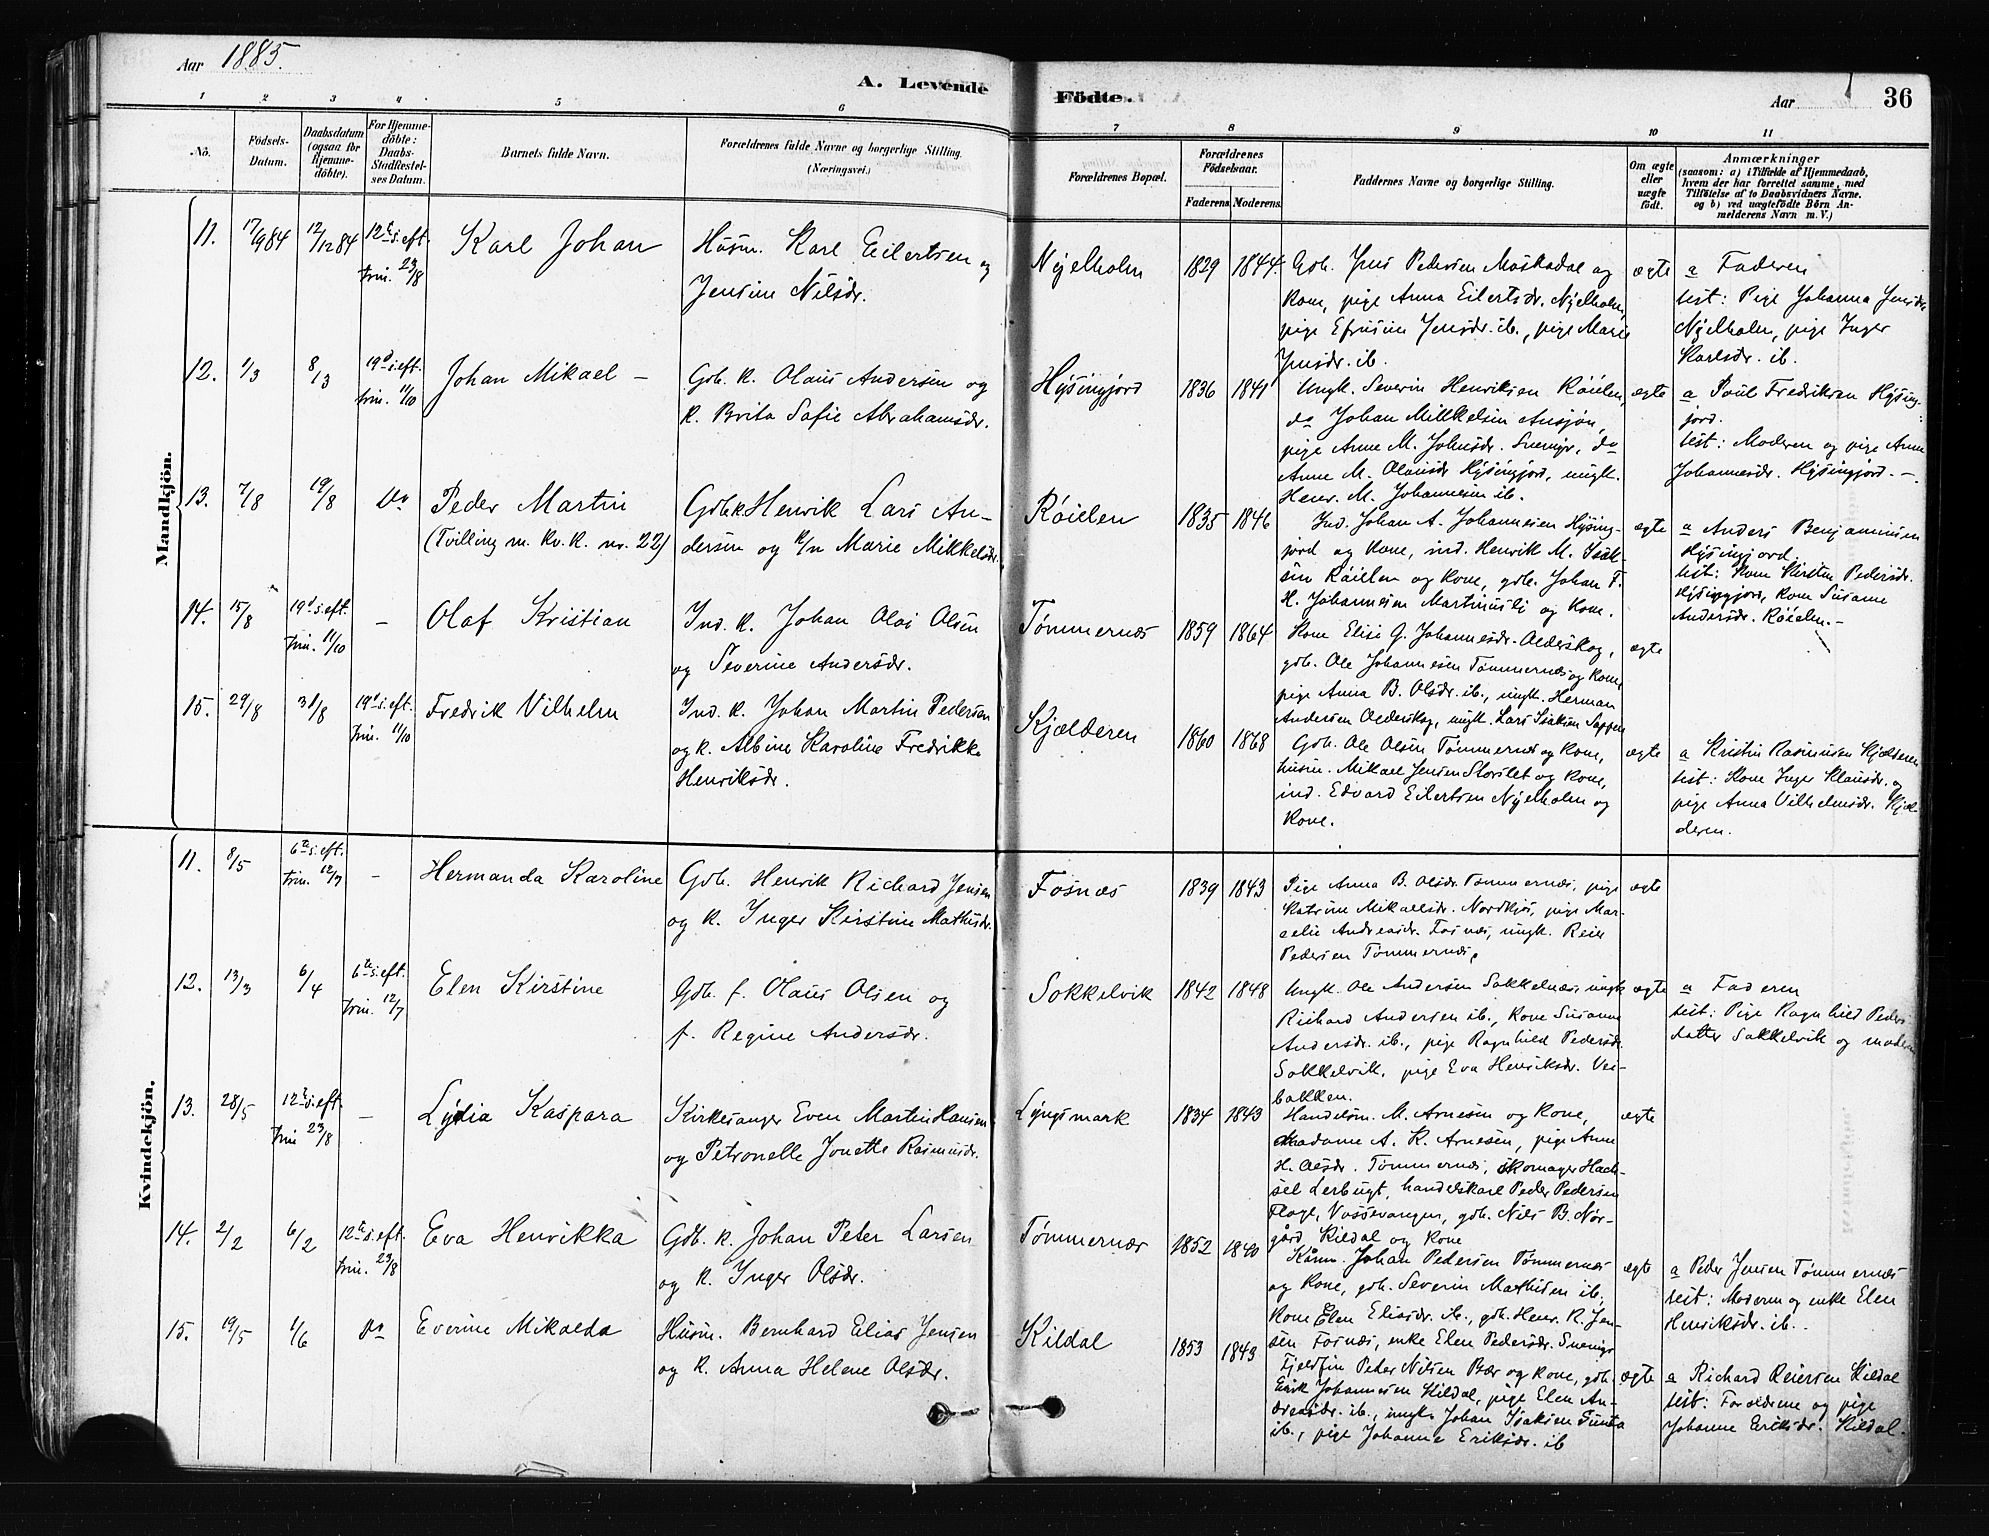 Aar 1885.
A. Levende Födte.
Aar
36
1 2 3 4 5 6 7 8 9 10 11
No.
Födsels-
Datum.
Daabsdatum
(ogsaa for
Hjemme-
döbte).
For Hjemme-
döbte:
Daabs-
Stadfæstel-
ses Datum.
Barnets fulde Navn.
Forældrenes fulde Navne og borgerlige Stilling.
(Næringsvei.)
Forældrenes Bopæl.
Forældrenes
Födselsaar.
Faderens. Moderens.
Faddernes Navne og borgerlige Stilling.
Om ægte
eller
uægte
födt.
Anmærkninger
(saasom: a) i Tilfælde af Hjemmedaab,
hvem der har forrettet samme, med
Tilföielse af to Daabsvidners Navne.
og b) ved uægtefödte Börn An-
melderens Navn m. V.)
Mandkjön.
11. 17/9 84 12/12 84 12te s. eft.
trin. 23/8
Karl Johan
Husm. Karl Eilertsen og
Jensine Nilsdr.
Njelholm 1829 1844.
Gdb. Jens Pedersen Moskodal og
kone, pige Anna Eilertsdr. Njelholm,
pige Efrusine Jensdr. ib., pige Marie
Jensdr. ib.
ægte
a Faderen
test: Pige Johanna Jensdr.
Njelholm, pige Inger
Karlsdr. ib.
12. 1/3 8/3 19d s. eft.
trin. 11/10
Johan Mikael –
Gdb. k. Olaus Andersen og
k. Brita Sofie Abrahamsdr.
Hysingjord 1836 1841
Ungk. Severin Henriksen Röielen,
do Johan Mikkelsen Ansjön,
pige Anne M. Johnsdr. Snemyr, do
Anne M. Olausdr. Hysingjord, ungk.
Henr. M. Johannesen ib.
ægte
a Poul Fredriksen Hysing-
jord.
test: Moderen og pige Anne
Johannesdr. Hysingjord. –
13. 7/8 19/8 do
Peder Martin
(Tvilling m. Kv. K. no. 22)
Gdbk Henrik Lars An-
dersen og k/n Marie Mikkelsdr.
Röielen 1835 1846
Ind. Johan A. Johannesen Hysing-
jord og kone, ind. Henrik M. Isak-
sen Röielen og kone, gdb. Johan F.
H. Johannesen Martinusli og kone.
ægte
a Anders Benjaminsen
Hysingjord.
test: Kone Kirsten Pedersdr.
Hysingjord, kone Susanne
Andersdr. Röielen. –
14. 15/8 19d s. eft.
trin. 11/10
–
Olaf Kristian
Ind. k. Johan Olai Olsen
og Severine Andersdr.
Tömmernæs 1859 1864
Kone Elise G. Johannesdr. Olderskog,
gdb. Ole Johannesen Tömmernæs og kone,
pige Anna B. Olsdr. ib., ungk. Herman
Andersen Olderskog, ungk. Lars Isaksen Sappen
ægte
15. 29/8 31/8 19d s. eft.
trin. 11/10
Fredrik Vilhelm
Ind. k. Johan Martin Pedersen
og k. Albine Karoline Fredrikke
Henriksdr.
Kjælderen 1860 1868
Gdb. Ole Olsen Tömmernæs og kone,
husm. Mikael Jensen Storslet og kone,
ind. Edvard Eilertsen Njelholm og
kone.
ægte
a Kristen Rasmussen Kjælderen
test: Kone Inger Klausdr. og
pige Anna Vilhelmsdr. Kjæl-
deren.
Kvindekjön.
11. 8/5 6te s. eft.
trin. 12/7
–
Hermanda Karoline
Gdb. Henrik Richard Jensen
og k. Inger Kirstine Mathisdr.
Fosnæs 1839 1843
Pige Anna B. Olsdr. Tömmernæs, pige
Katrine Mikaelsdr. Nordkjös, pige Mar-
celie Andreasdr. Fosnæs, ungk. Reier
Pedersen Tömmernæs.
ægte
12. 13/3 6/4 6te s. eft.
trin. 12/7
Elen Kirstine
Gdb. f. Olaus Olsen og
f. Regine Andersdr.
Sokkelvik 1842 1848
Ungk. Ole Andersen Sokkelnæs, ungk.
Richard Andersen ib., kone Susanne
Andersdr. ib., pige Ragnhild Pedersdr.
Sokkelvik, pige Eva Henriksdr. Vei-
bakken.
ægte
a Faderen
test: Pige Ragnhild Peders-
datter Sokkelvik og moderen
13. 28/5 12te s. eft.
trin 23/8
–
Lydia Kaspara
Kirkesanger Even Martin Hansen
og Petronelle Jonette Rasmusdr.
Lyngsmark 1834 1843
Handelsm. M. Arnesen og kone,
madame A. K. Arnesen, pige Anne
H. Olsdr. Tömmernæs, skomager Hach-
sel Lerbugt, handelskarl Peder Pedersen
Flage, Vossevangen, gdb. Nils B. Nor-
gård Kildal og kone
ægte
14. 2/2 6/2 12te s. eft.
trin. 23/8
Eva Henrikka
Gdb. k. Johan Peter Larsen
og k. Inger Olsdr.
Tömmernæs 1852 1840
Kårm. Johan Pedersen Tömmernæs
og kone, gdb. Severin Mathisen ib.,
kone Elen Eliasdr. ib., gdb. Henr. R. Jen-
sen Fosnæs, enke Elen Pedersdr. Snemyr
ægte
a Peder Jensen Tömmernæs
test: Moderen og enke Elen
Henriksdr. ib.
15. 19/5 1/6 do
Everine Mikalda
Husm. Bernhard Elias Jensen
og k. Anna Helene Olsdr.
Kildal 1853 1843
Fjeldfin Peder Nilsen Bær og kone, gdb.
Erik Johannesen Kildal, pige Elen An-
dreasdr. ib., ungk. Johan Isaksen Tunta
ib., pige Johanne Eriksdr. ib
ægte
a Richard Reiersen Kildal
test: Forældrene og pige
Johanne Eriksdr. Kildal.